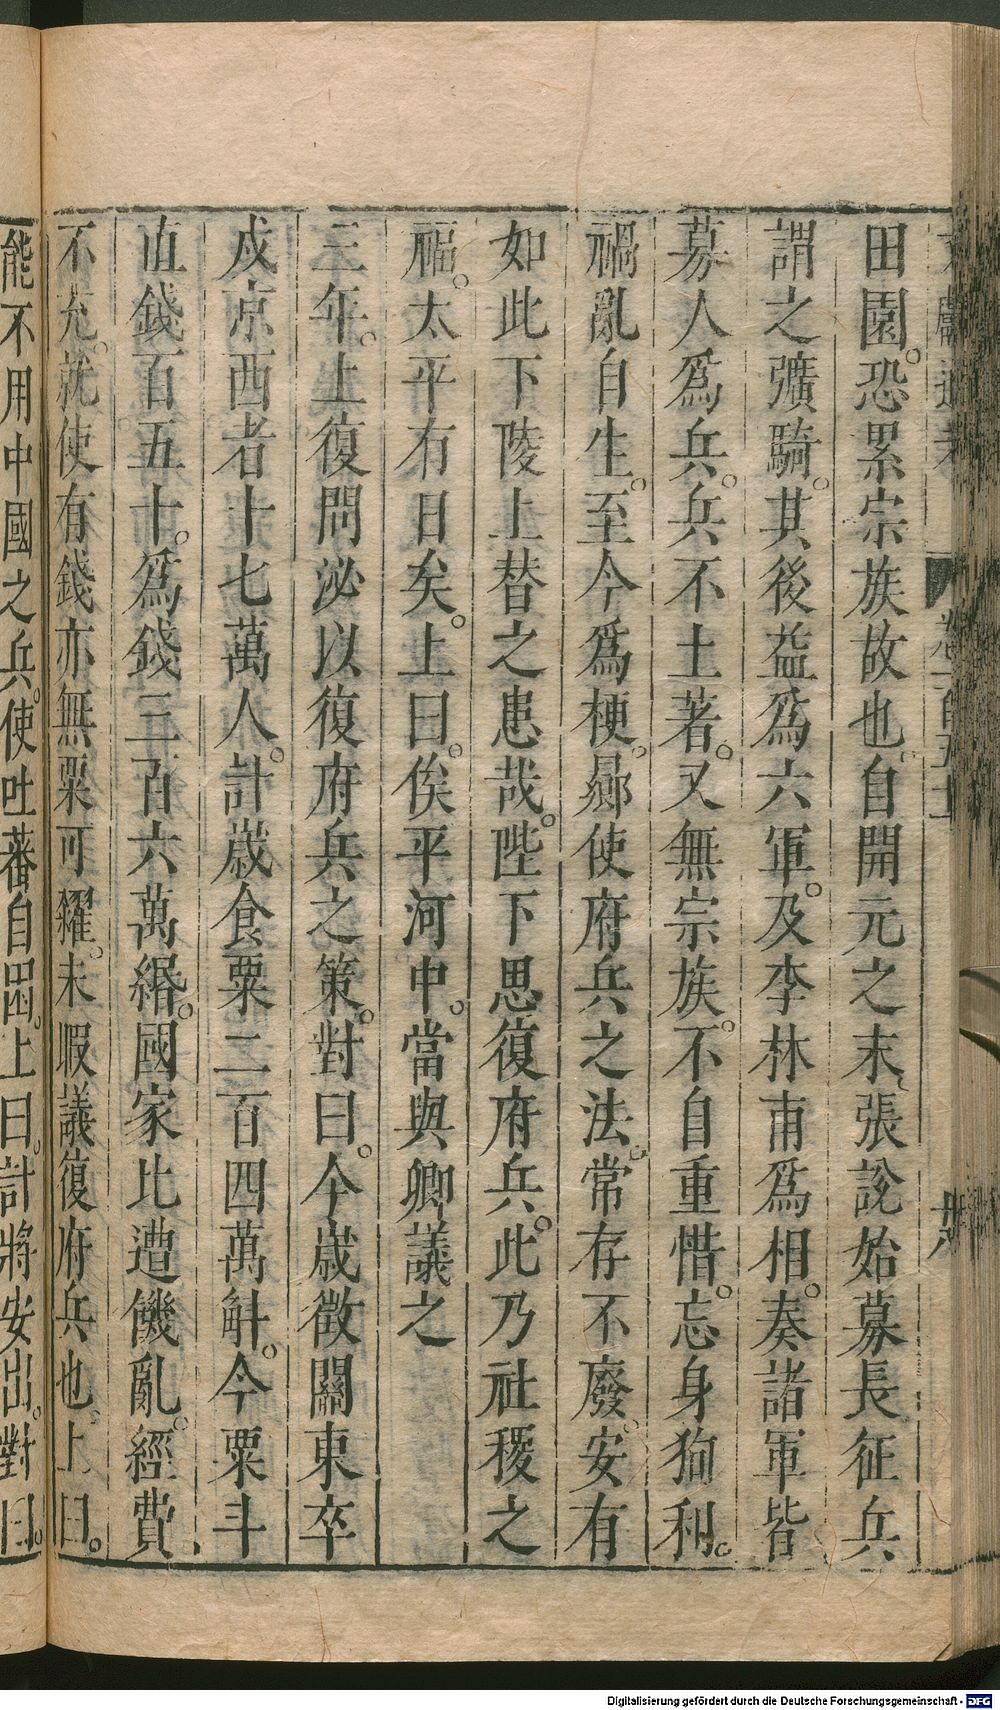 田園。恐累宗族故也。自開元之末、張說始募長征兵
謂之彍騎。其後益爲六軍。及李林甫爲相。奏諸軍皆
募人爲兵。兵不土著。又無宗族。不自重惜。忘身狥利。
禍亂自生。至今爲梗。曏使府兵之法。常存不廢。安有
如此下陵上替之患哉。陛下思復府兵。此乃社稷之
福。太平有日矣。上曰。俟平河中。當與卿議之
三年。上復問泌以復府兵之策。對曰。今歲徵關東卒
戍京西者十七萬人。計歲食粟二百四萬斛。今粟斗
直錢百五十。爲錢三百六萬緡。國家比遭饑亂。經費
不充。就使有錢亦無粟可糴。未暇議復府兵也。上曰。
能不用中國之兵。使吐蕃自困。上曰。計將安出。對曰。
Digitalisierung gefördert durch die Deutsche Forschungsgemeinschaft - DFG